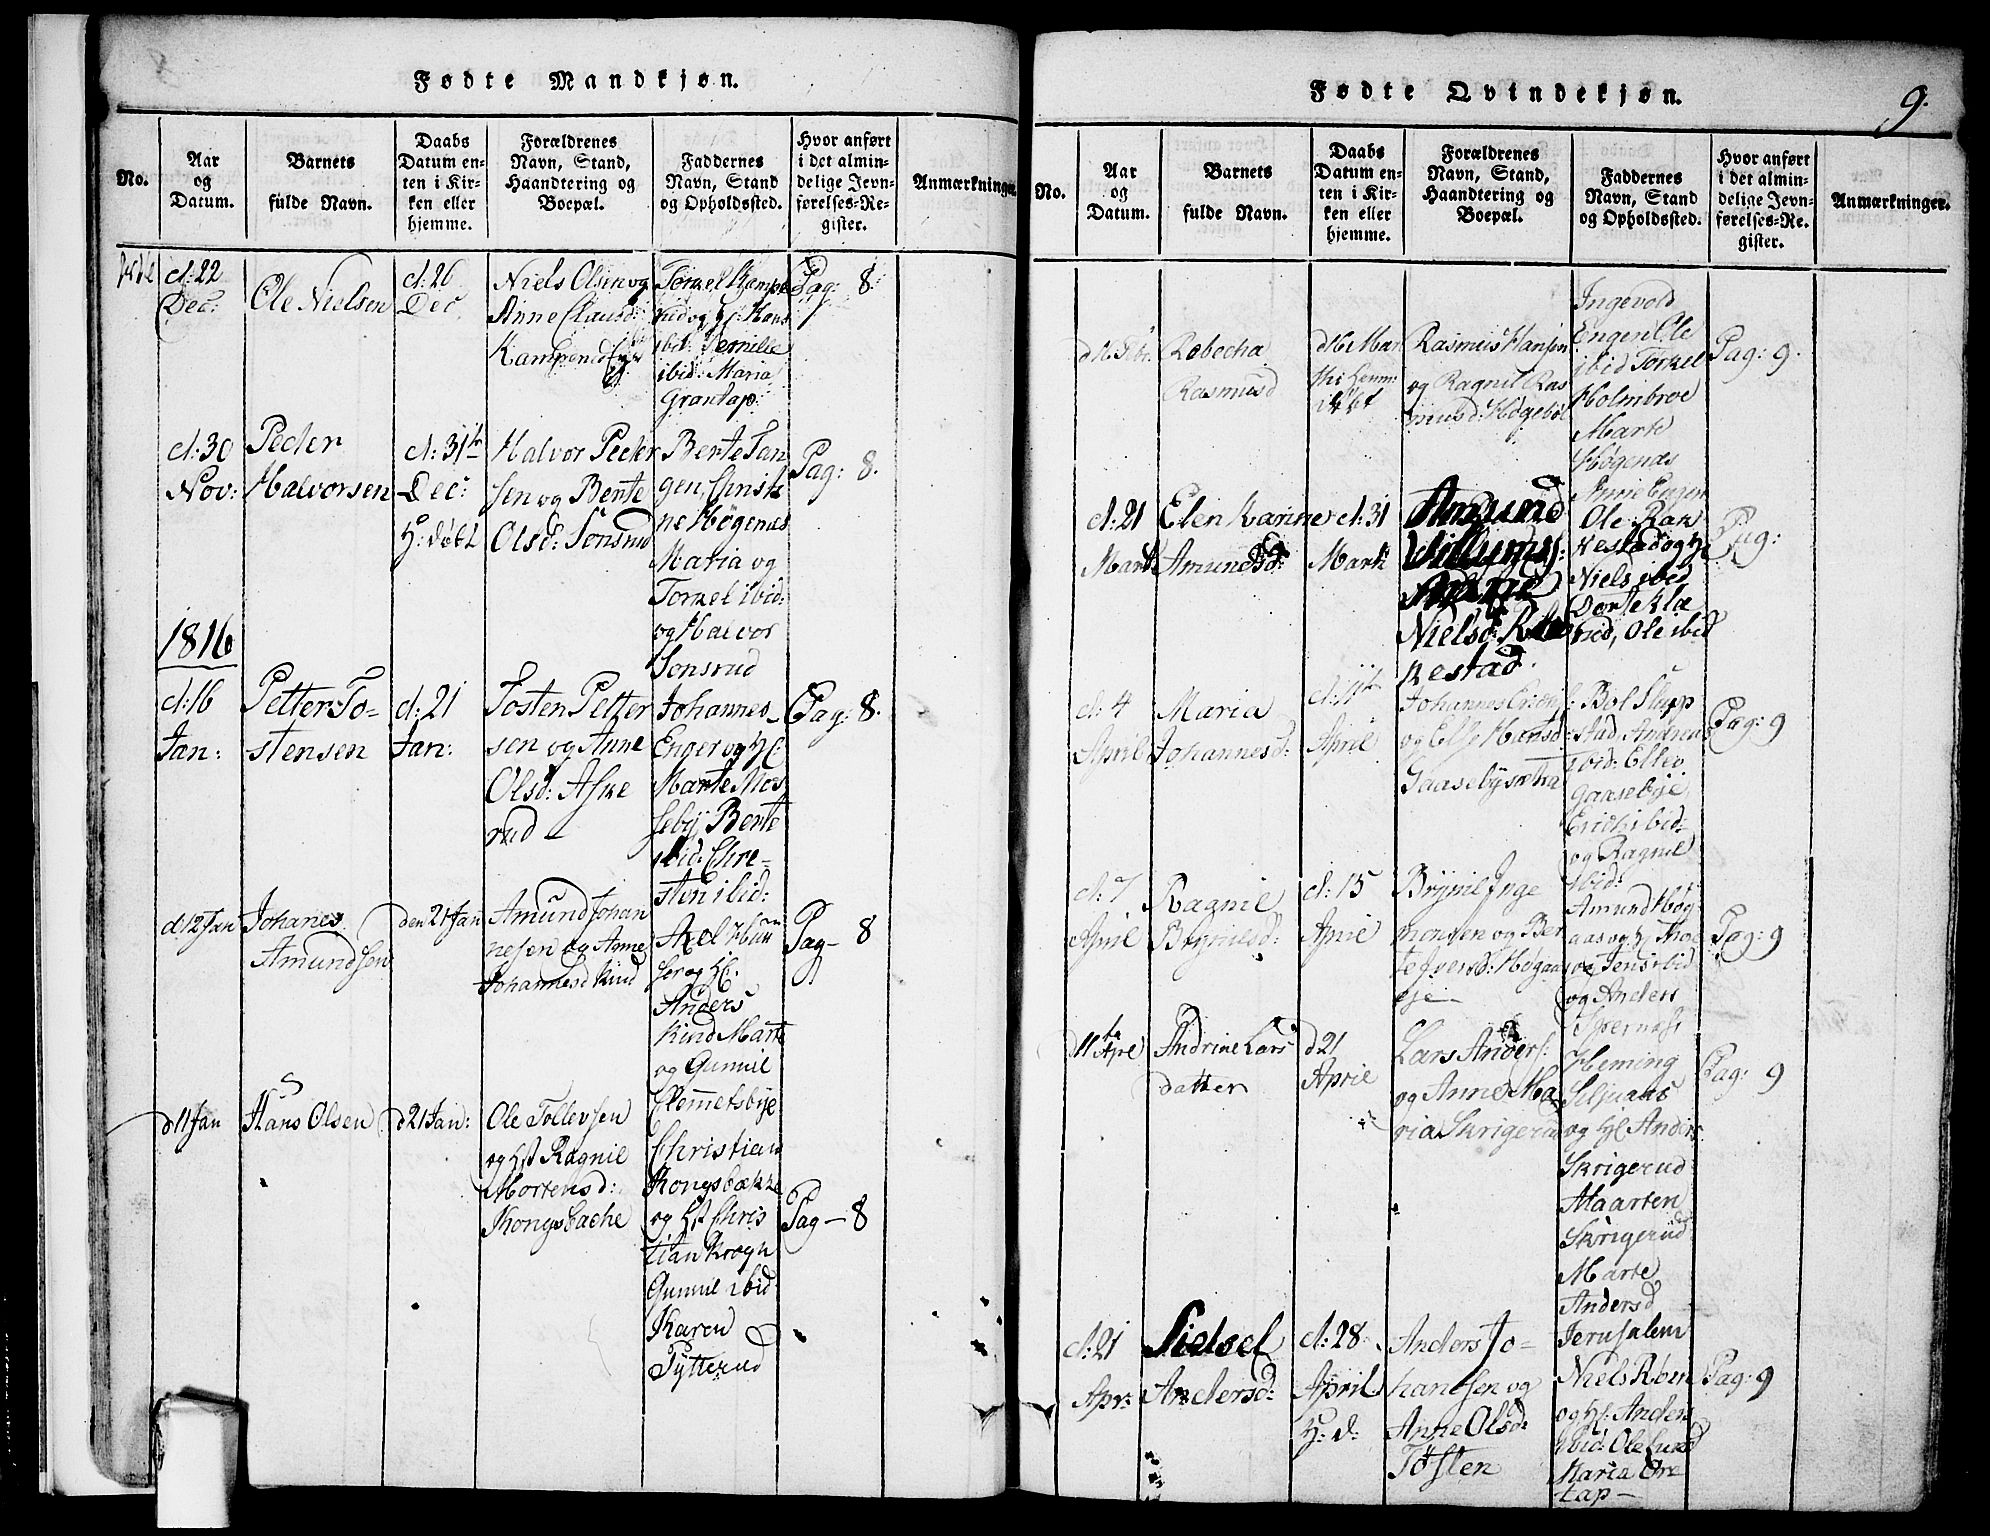 Fødte Mandkjøn.
No.
Aar
og
Datum.
Barnets
fulde Navn.
Daabs
Datum en-
ten i Kir-
ken eller
hjemme.
Forældrenes
Navn, Stand,
Haandtering og
Boepæl.
Faddernes
Navn, Stand
og Opholdssted.
Hvor anført
i det almin-
delige Jevn-
førelses-Re-
gister.
Anmærkninger.
d: 22
Dec:
Ole Nielsen
d: 26
Dec
Niels Olsen og
Anne Clausd:
Torkel Kampe
og Hf: Hans
ibid: Pernille
ibid: Maria
Grantap:
Pag: 8.
d: 30
Nov:
Peder
Halvorsen
d: 31te
Dec:
H: døbt
Halvor Peder
sen og Bente
Olsd: Sonsrud
Berte Tan
gen, Christi
ne Høgenæs
Maria og
Torkel ibid:
og Halvor
Sonsrud
Pag: 8.
1816
d: 16
Jan:
Petter To-
stensen
d: 21
Jan:
Tosten Petter
sen og Anne
Olsd: Aske
rud -
Johannes
Enger og Hf:
Marte Mos
seby Bente
ibid: Chre-
sten ibid:
Pag: 8.
d: 12 Jan
Johanes
Amundsen
den 21 Jan
Amund Johan
nesen og Anne
Johannesd Kind
Axel
og Hf.
Anders
Kind Marte
og Gunnil
Clemmetsbye
Pag - 8
d 11 Jan
Hans Olsen
d 21 Jan:
Ole Tollevsen
og Hst Ragnil
Mortensd:
Kongsbache
Christian
Kongsbække
og Hst Chris
tian Krogh
Gunnil ibid
Karen
Tytterud
Pag - 8
Fødte Qvindekjøn.
9.
No.
Aar
og
Datum.
Barnets
fulde Navn.
Daabs
Datum en-
ten i Kir-
ken eller
hjemme.
Forældrenes
Navn, Stand,
Haandtering og
Boepæl.
Faddernes
Navn, Stand
og Opholdssted.
Hvor anført
i det almin-
delige Jevn-
førelses-Re-
gister.
Anmærkninger.
Rebecha
Rasmusd
Rasmus Hansen
og Ragnil Ras
musd: Høgebøl
Ingevold
Engen Ole
ibid Torkel
Holmbroe
Marte
Høgenæs
Anne Engen
Pag: 9.
d: 21
Marti
Elen Karine
Amundsd:
d: 31
Marti
Amund
Nielsd:
kestad.
Ole Rak
kestad og Hf
Niels ibid
Dorte Klæ
rud, Ole ibid
Pag:
d: 4
April
Maria
Johannesd:
April
Johannes
og Else Hansd:
Gaasebysætra
Bol Slup
stad Andreas
ibid: Ellev
Gaasebye
Erich ibid:
og Ragnil
ibid:
Pag: 9
d: 7
April
Ragnil
Brynilsd:
d: 15
April
Brynil Inge
monsen og Ber
te Iversd: Høgaas
eje -
Amund Høg
aas og Hf
og Jens ibid
og Anders
Pag: 9
d 11te Apl
Andrine Lars
datter
d 21
April
Lars Anders:
og Anne Ma
ria Skrigerud
Heming
Siljuaas
og Hf Anders
Skrigerud
Maarten
Skrigerud
Marte
Andersd
Jerusalem
Pag: 9
d: 21
Apr:
Sidsel
Andersd:
d: 28
April
H: d:
Anders Jo-
hansen og
Anne Olsd:
Tøsten
Niels Røen
og Hf: Anders
ibid: Ole Lund
Maria Gre
tap -
Pag: 9